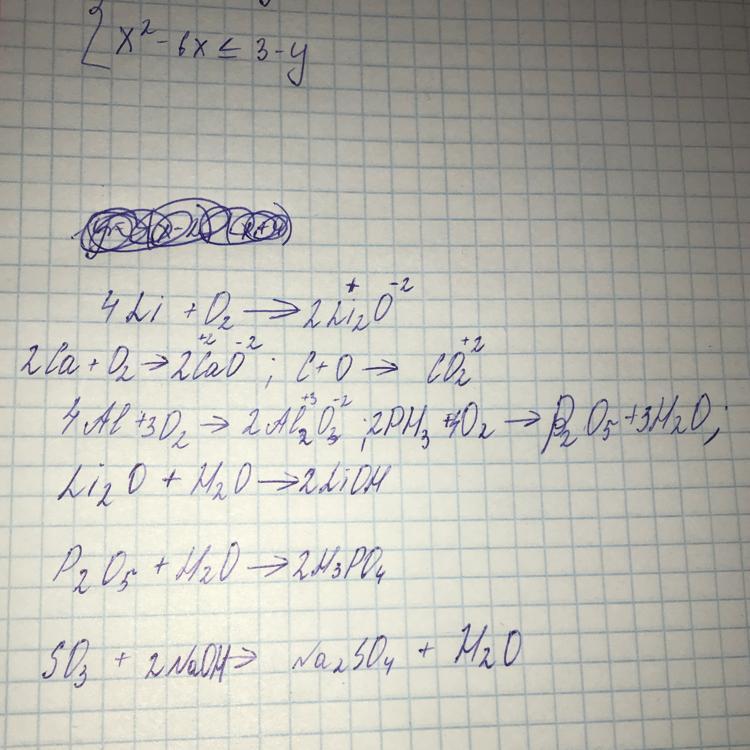 { x² - 6x ≤ 3 - y
4Li + O₂ → 2Li₂⁺O⁻²
2Ca + O₂ → 2Ca⁺²O⁻² ; C + O → CO₂⁺²
4Al + 3O₂ → 2Al₂⁺³O₃⁻² ; 2PH₃ + 4O₂ → P₂O₅ + 3H₂O ;
Li₂O + H₂O → 2LiOH
P₂O₅ + H₂O → 2H₃PO₄
SO₃ + 2NaOH → Na₂SO₄ + H₂O